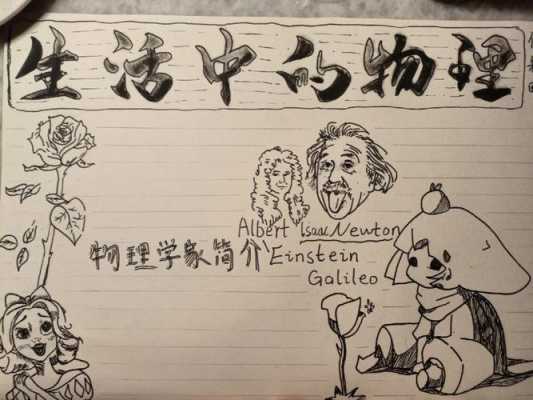 生活中的物理
Albert Isaac Newton
物理学家简介 Einstein
Galileo